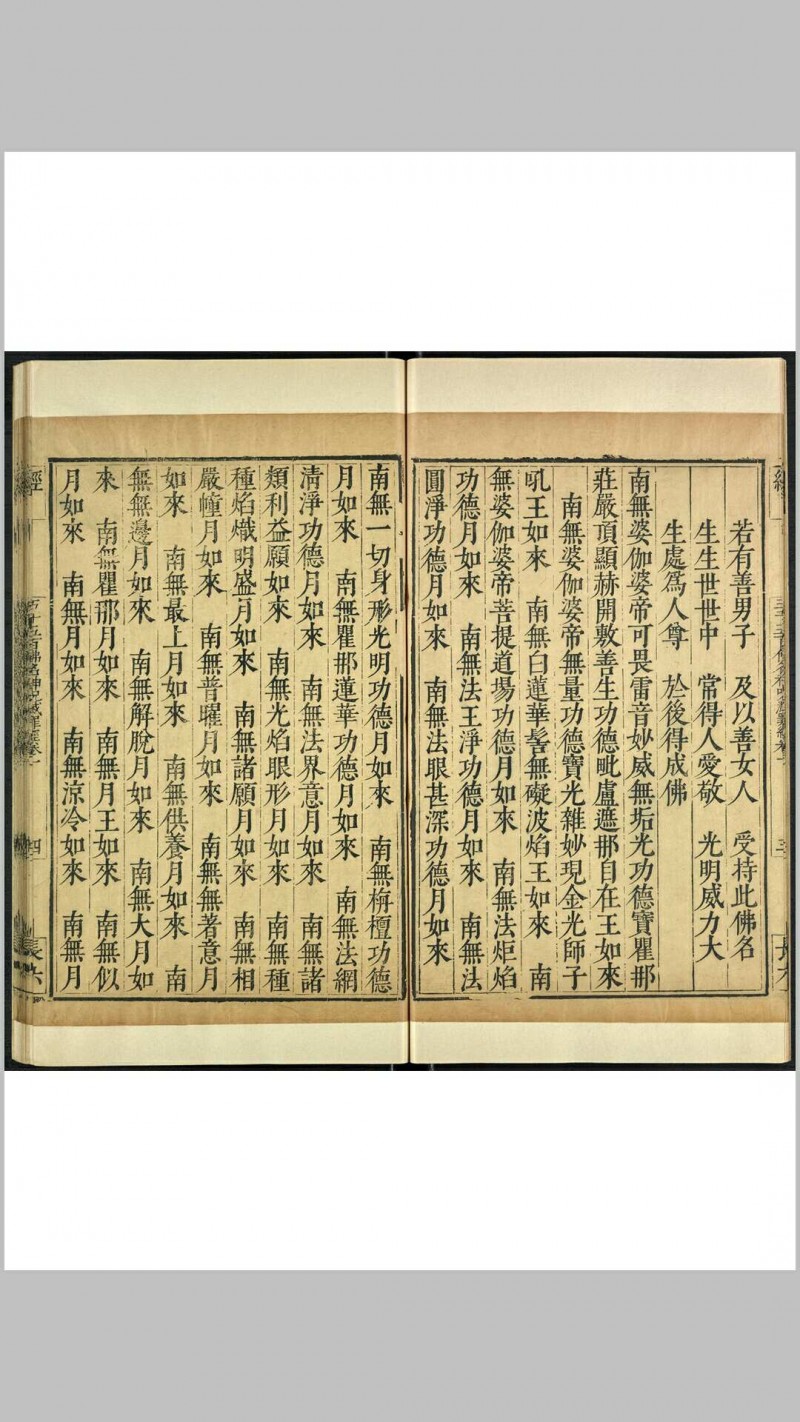 若有善男子　及以善女人　受持此佛名
生生世世中　常得人愛敬　光明威力大
生處為人尊　於後得成佛
南無婆伽婆帝可畏雷音妙威無垢光功德寶瞿那
莊嚴頂顯赫開敷善生功德毗盧遮那自在王如來
南無婆伽婆帝無量功德寶光雜妙現金光師子
吼王如來　南無白蓮華髻無礙波焰王如來　南
無婆伽婆帝菩提道場功德月如來　南無法炬焰
功德月如來　南無法王淨功德月如來　南無法
圓淨功德月如來　南無法眼甚深功德月如來
南無一切身形光明功德月如來　南無栴檀功德
月如來　南無瞿那蓮華功德月如來　南無法網
清淨功德月如來　南無法界意月如來　南無諸
類利益願如來　南無光焰眼形月如來　南無種
種焰熾明盛月如來　南無諸願月如來　南無相
嚴幢月如來　南無普曜月如來　南無無著意月
如來　南無最上月如來　南無供養月如來　南
無無邊月如來　南無解脫月如來　南無大月如
來　南無瞿那月如來　南無月王如來　南無似
月如來　南無月如來　南無涼冷如來　南無月
經　四